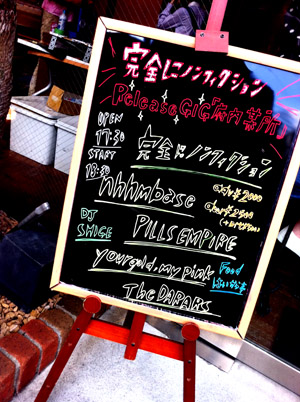 完全にノンフィクション
Release GIG「
OPEN
17:30
START
18:30
完全にノンフィクション
hhhmbase
DJ
SHIGE
PILLS EMPIRE
yourgold,my pink
Food
The DAPARTS